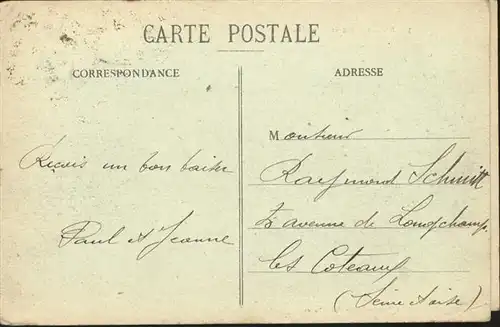 CARTE POSTALE
CORRESPONDANCE
ADRESSE
Reçois un bon baiser
Paul et Jeanne
Monsieur
Raymond Schmitt
avenue de Longchamp
les Coteaux
(Seine et oise)